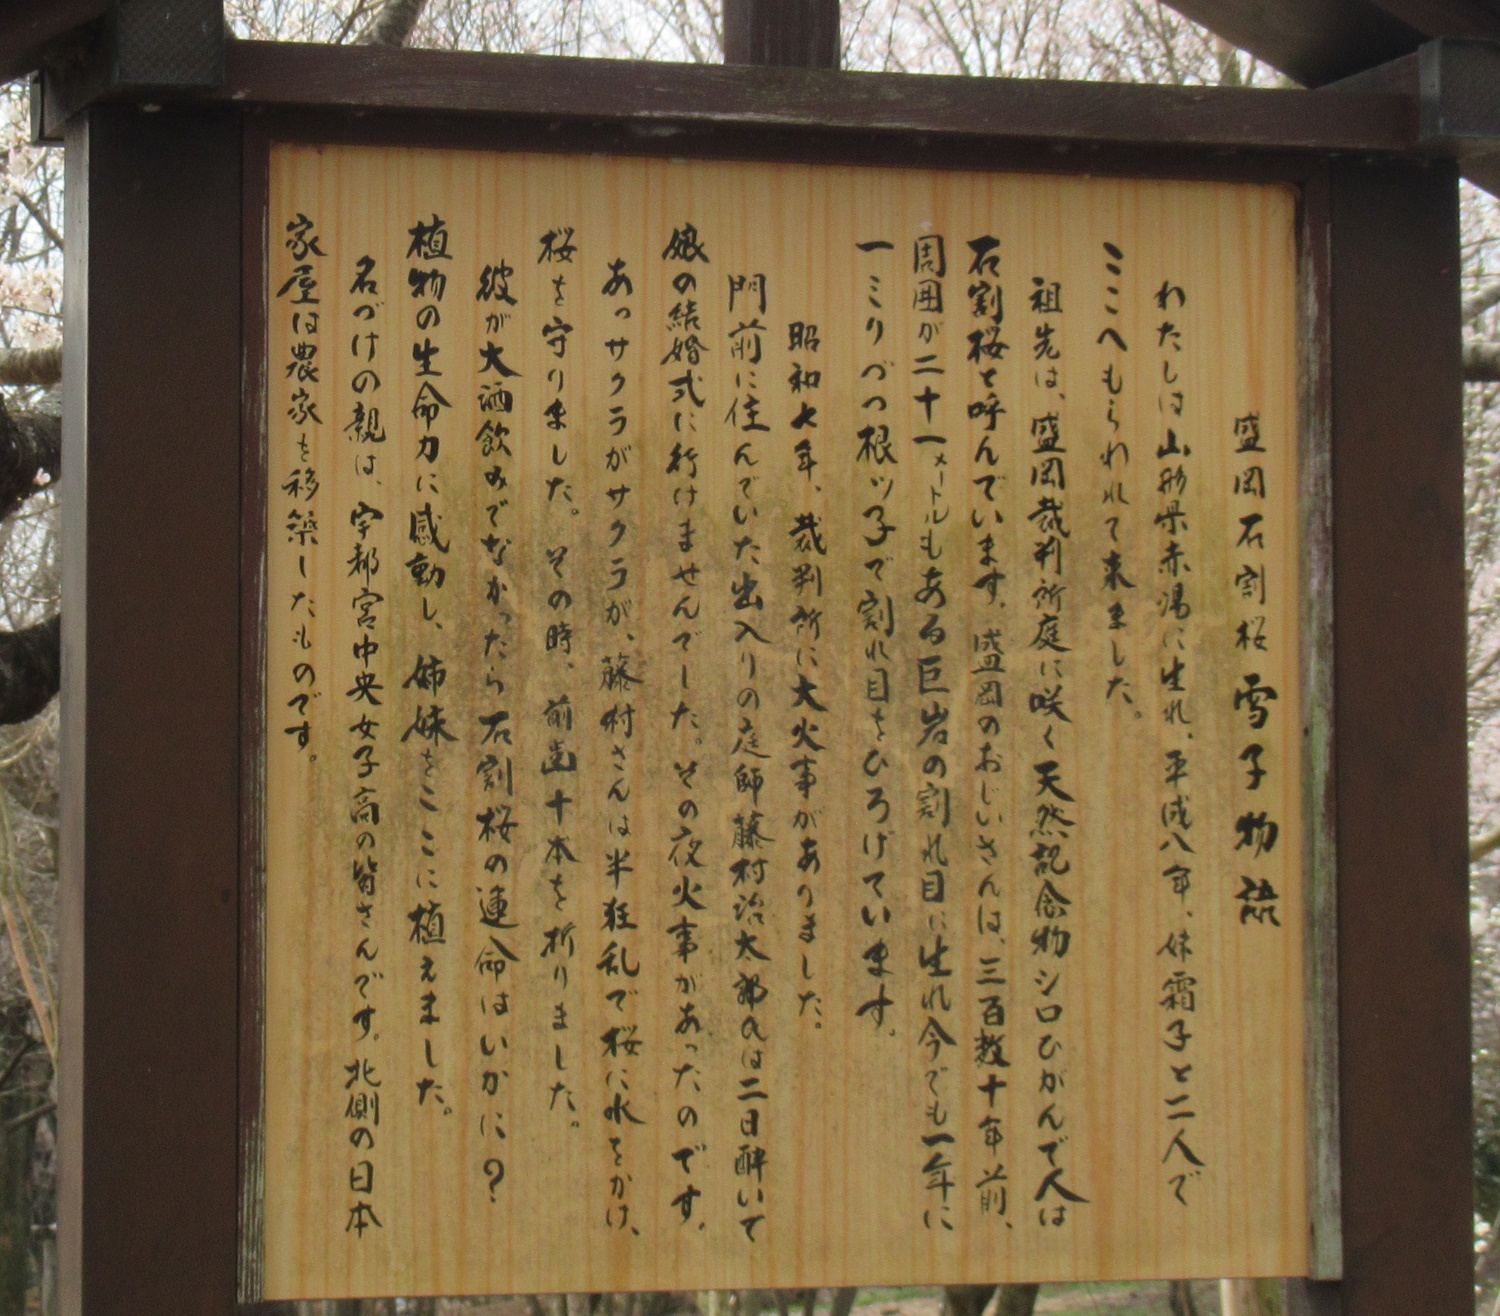 盛岡石割桜 雪子物語
わたしは山形県赤湯に生れ、平成八年、妹霜子と二人で
ここへもらわれて来ました。
祖先は、盛岡裁判所庭に咲く天然記念物シロひがんで人は
石割桜と呼んでいます。盛岡のおじいさんは、三百数十年前、
周囲が二十一メートルもある巨岩の割れ目に生れ今でも一年に
一ミリづつ根ッ子で割れ目をひろげています。
昭和七年、裁判所に大火事がありました。
門前に住んでいた出入りの庭師藤村治太郎氏は二日酔いで
娘の結婚式に行けませんでした。その夜火事があったのです。
あっサクラがサクラが、藤村さんは半狂乱で桜に水をかけ、
桜を守りました。その時、前歯十本を折りました。
彼が大酒飲みでなかったら石割桜の運命はいかに?
植物の生命力に感動し、姉妹をここに植えました。
名づけの親は、宇都宮中央女子高の皆さんです。北側の日本
家屋は農家を移築したものです。